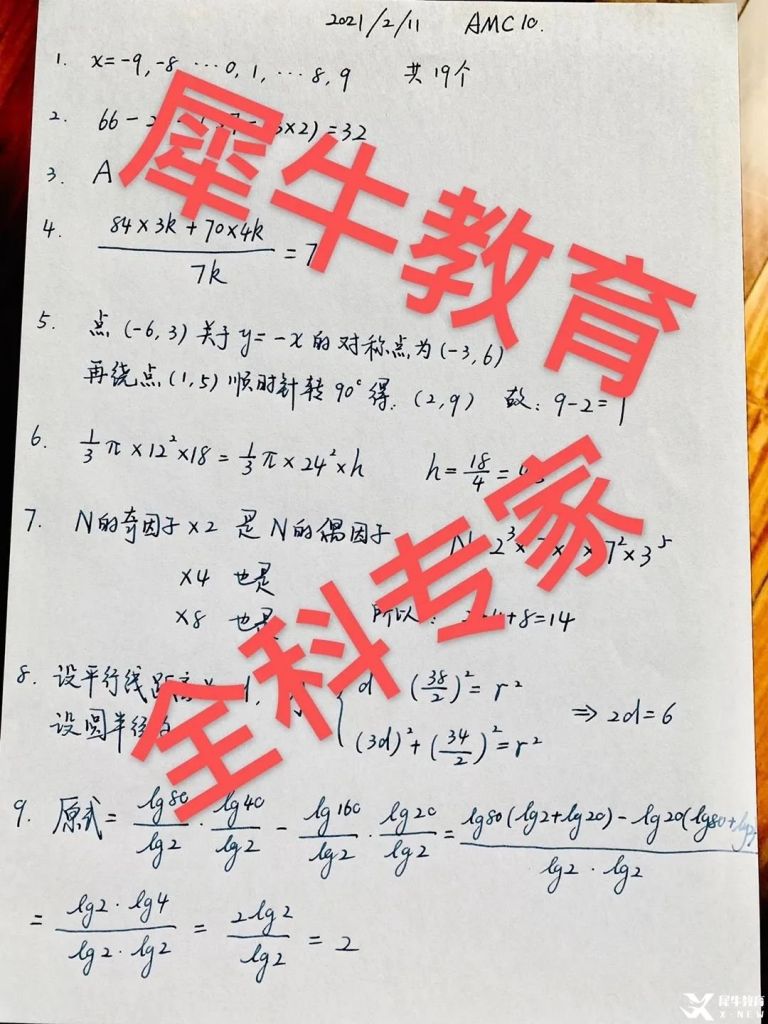 2021/2/11 AMC10.
1. x=-9,-8 …0,1,…8,9 共19个
2. 66- ×2)=32
3. A
4. (84×3k+70×4k)/7k =7
5. 点(-6,3)关于y=-x的对称点为(-3,6)
再绕点(1,5)顺时针转90°得:(2,9) 故:9-2=
6. 1/3 π×12²×18=1/3 π×24²×h h=18/4=4.5
7. N的奇因子×2 是N的偶因子 2³× 7²×3⁵
×4 也是
×8 也是 所以: +8=14
8. 设平行线距 d (38/2)²=r²
设圆半径 (3d)²+(34/2)²=r² ⇒2d=6
9. 原式= lg80/lg2 · lg40/lg2 - lg160/lg2 · lg20/lg2 = (lg80(lg2+lg20)-lg20(lg80+lg2))/(lg2·lg2)
= (lg2·lg4)/(lg2·lg2) = 2lg2/lg2 = 2
犀牛教育
全科专家
犀牛教育
X-NEW